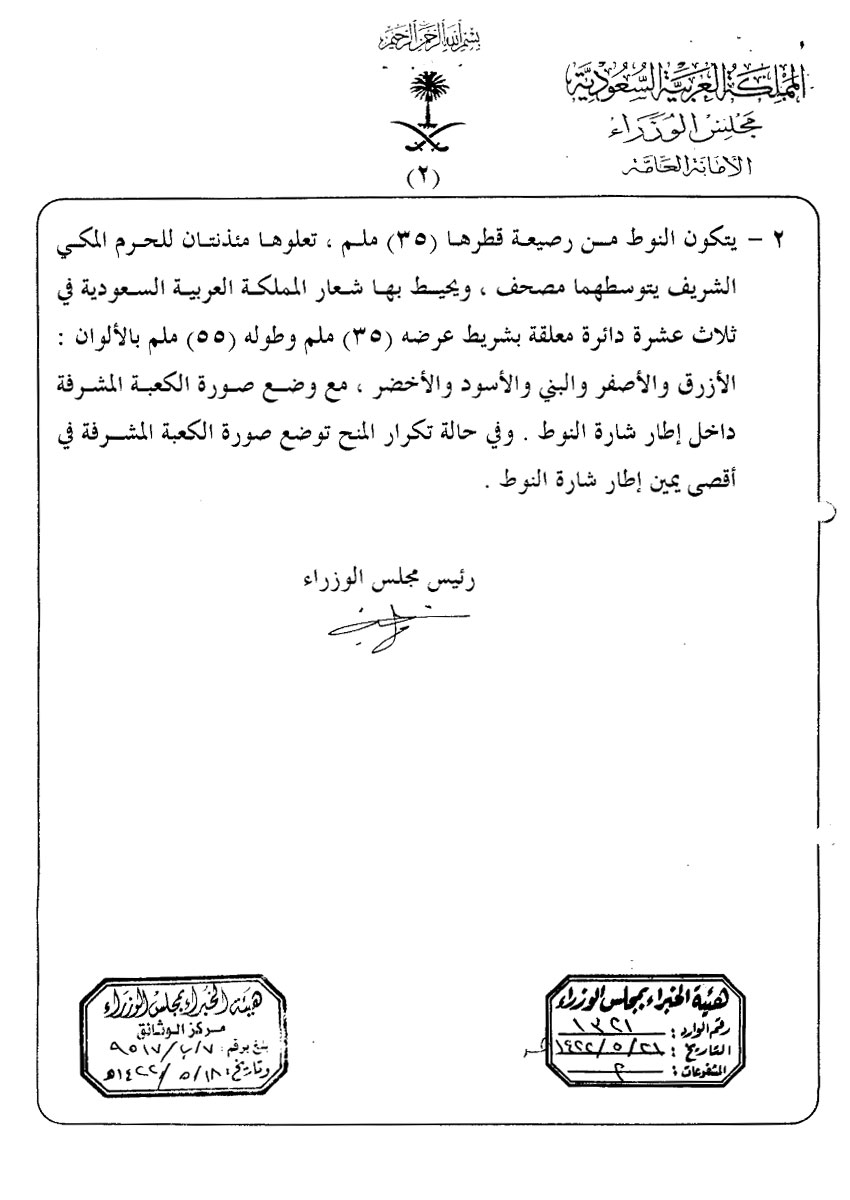 بسم الله الرحمن الرحيم
المملكة العربية السعودية
مجلس الوزراء
الأمانة العامة
(٢)
٢ – يتكون النوط من رصيعة قطرها (٣٥) ملم ، تعلوها مئذنتان للحرم المكي
الشريف يتوسطهما مصحف ، ويحيط بها شعار المملكة العربية السعودية في
ثلاث عشرة دائرة معلقة بشريط عرضه (٣٥) ملم وطوله (٥٥) ملم بالألوان :
الأزرق والأصفر والبني والأسود والأخضر ، مع وضع صورة الكعبة المشرفة
داخل إطار شارة النوط . وفي حالة تكرار المنح توضع صورة الكعبة المشرفة في
أقصى يمين إطار شارة النوط .
رئيس مجلس الوزراء
هيئة الخبراء بمجلس الوزراء
رقم الوارد : ١٣٢١
التاريخ : ٢١/٥/١٤٢٢
المشفوعات : ٢
هيئة الخبراء بمجلس الوزراء
مركز الوثائق
بلغ برقم : ٧/ب/٩٥١٧
وتاريخ : ١٨/٥/١٤٢٢هـ